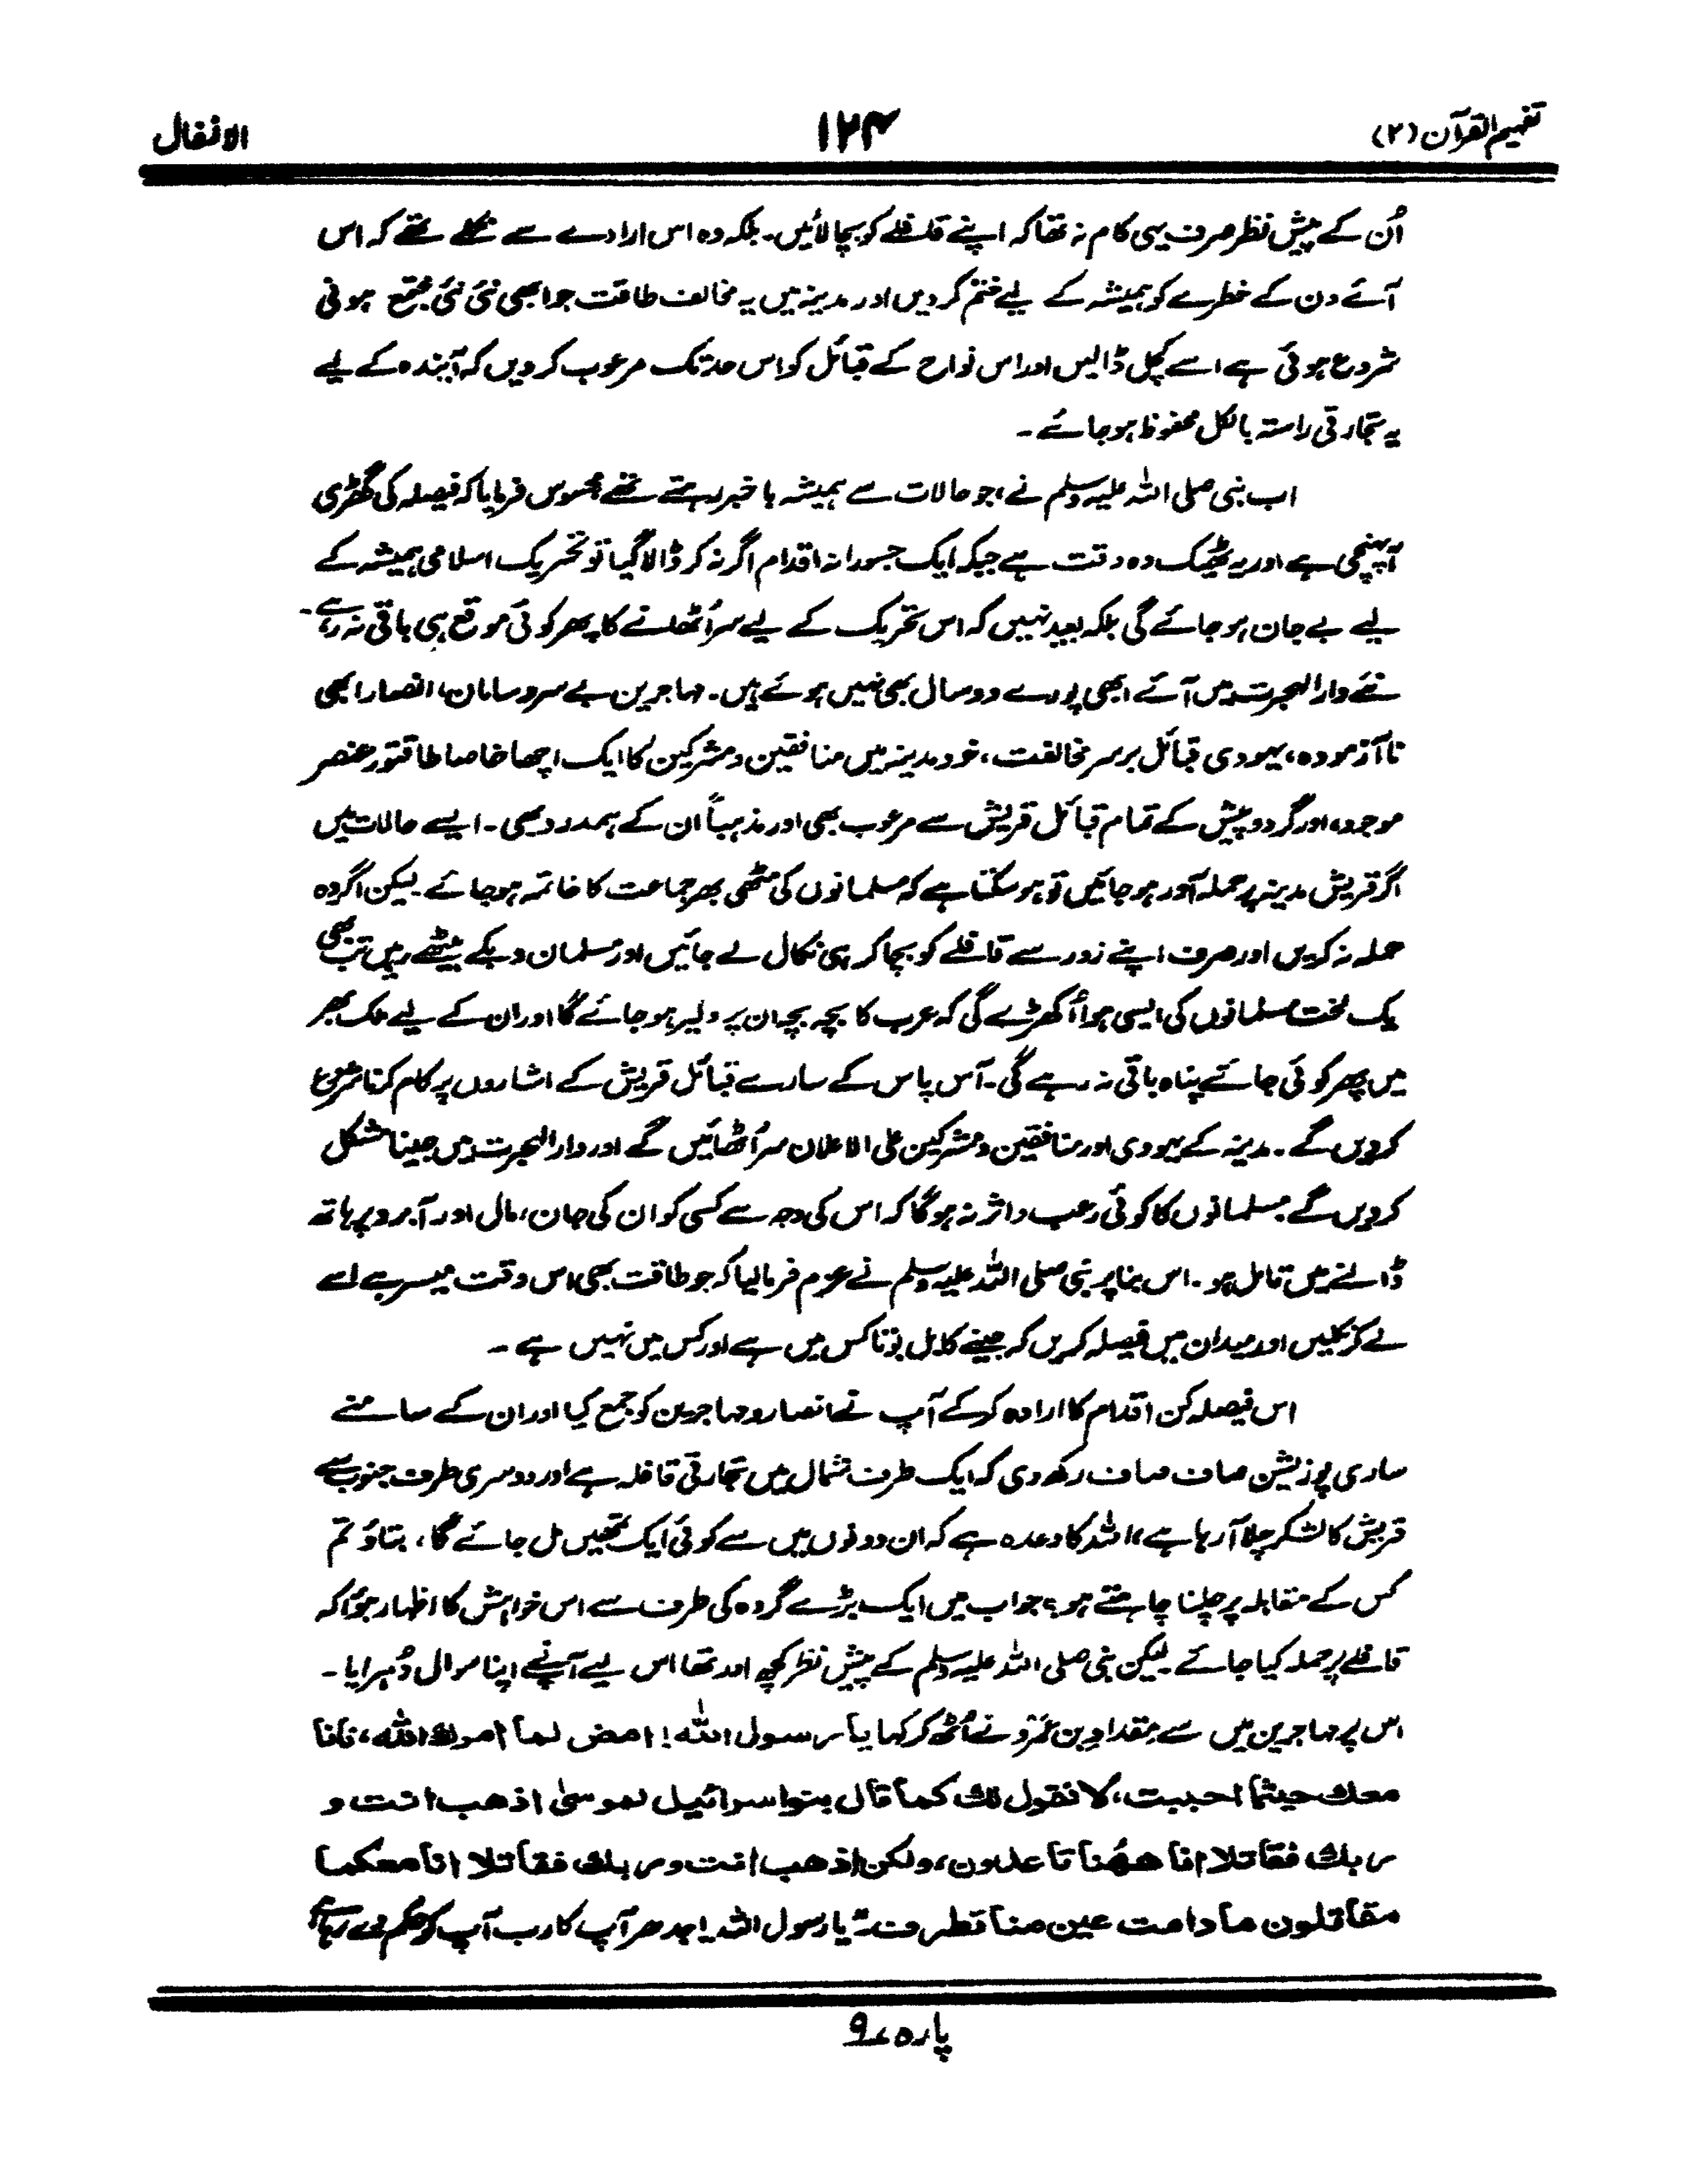 تفہیم القرآن (۲)
۱۲۴
الانفال
اُن کے پیش نظر صرف یہی کام نہ تھا کہ اپنے قافلے کو بچا لائیں۔ بلکہ وہ اس ارادے سے نکلے تھے کہ اس
آئے دن کے خطرے کو ہمیشہ کے لیے ختم کر دیں اور مدینہ میں یہ مخالف طاقت جو ابھی نئی نئی مجتمع ہونی
شروع ہوئی ہے اسے کچل ڈالیں اور اس نواح کے قبائل کو اس حد تک مرعوب کر دیں کہ آیندہ کے لیے
یہ تجارتی راستہ بالکل محفوظ ہو جائے۔
اب نبی صلی اللہ علیہ وسلم نے، جو حالات سے ہمیشہ باخبر رہتے تھے محسوس فرمایا کہ فیصلہ کی گھڑی
آپہنچی ہے اور یہ ٹھیک وہ وقت ہے جبکہ ایک جسورانہ اقدام اگر نہ کر ڈالا گیا تو تحریک اسلامی ہمیشہ کے
لیے بے جان ہو جائے گی بلکہ بعید نہیں کہ اس تحریک کے لیے سر اُٹھانے کا پھر کوئی موقع ہی باقی نہ رہے۔
نئے دار الہجرت میں آئے ابھی پورے دو سال بھی نہیں ہوئے ہیں۔ مہاجرین بے سرو سامان، انصار ابھی
ناآزمودہ، یہودی قبائل برسر مخالفت، خود مدینہ میں منافقین و مشرکین کا ایک اچھا خاصا طاقتور عنصر
موجود، اور گرد و پیش کے تمام قبائل قریش سے مرعوب بھی اور مذہباً ان کے ہمدرد بھی۔ ایسے حالات میں
اگر قریش مدینہ پر حملہ آور ہو جائیں تو ہو سکتا ہے کہ مسلمانوں کی مٹھی بھر جماعت کا خاتمہ ہو جائے۔ لیکن اگر وہ
حملہ نہ کریں اور صرف اپنے زور سے قافلے کو بچا کر ہی نکال لے جائیں اور مسلمان دبکے بیٹھے رہیں تب بھی
یک لخت مسلمانوں کی ایسی ہوا اُکھڑے گی کہ عرب کا بچہ بچہ ان پر دلیر ہو جائے گا اور ان کے لیے ملک بھر
میں پھر کوئی جائے پناہ باقی نہ رہے گی۔ آس پاس کے سارے قبائل قریش کے اشاروں پر کام کرنا شروع
کر دیں گے۔ مدینہ کے یہودی اور منافقین و مشرکین علی الاعلان سر اُٹھائیں گے اور دار الہجرت میں جینا مشکل
کر دیں گے۔ مسلمانوں کا کوئی رعب و اثر نہ ہوگا کہ اس کی وجہ سے کسی کو ان کی جان، مال اور آبرو پر ہاتھ
ڈالنے میں تامل ہو۔ اس بنا پر نبی صلی اللہ علیہ وسلم نے عزم فرما لیا کہ جو طاقت بھی اس وقت میسر ہے اسے
لے کر نکلیں اور میدان میں فیصلہ کریں کہ جینے کا بل بوتا کس میں ہے اور کس میں نہیں ہے۔
اس فیصلہ کن اقدام کا ارادہ کر کے آپ نے انصار و مہاجرین کو جمع کیا اور ان کے سامنے
ساری پوزیشن صاف صاف رکھ دی کہ ایک طرف شمال میں تجارتی قافلہ ہے اور دوسری طرف جنوب سے
قریش کا لشکر چلا آ رہا ہے، اللہ کا وعدہ ہے کہ ان دونوں میں سے کوئی ایک تمھیں مل جائے گا، بتاؤ تم
کس کے مقابلہ پر چلنا چاہتے ہو؟ جواب میں ایک بڑے گروہ کی طرف سے اس خواہش کا اظہار ہوا کہ
قافلے پر حملہ کیا جائے۔ لیکن نبی صلی اللہ علیہ وسلم کے پیش نظر کچھ اور تھا اس لیے آپ نے اپنا سوال دُہرایا۔
اس پر مہاجرین میں سے مقداد بن عمرو نے اُٹھ کر کہا یا رسول اللہ! امض لما امرك الله، فانا
معك حیثما احببت، لا نقول لك کما قال بنو اسرائیل لموسیٰ اذهب انت و
ربك فقاتلا انا ههُنا قاعدون، ولکن اذهب انت وربك فقاتلا انا معکما
مقاتلون ما دامت عین منا تطرف۔ "یا رسول اللہ! جدھر آپ کا رب آپ کو حکم دے رہا ہے
پارہ ۹